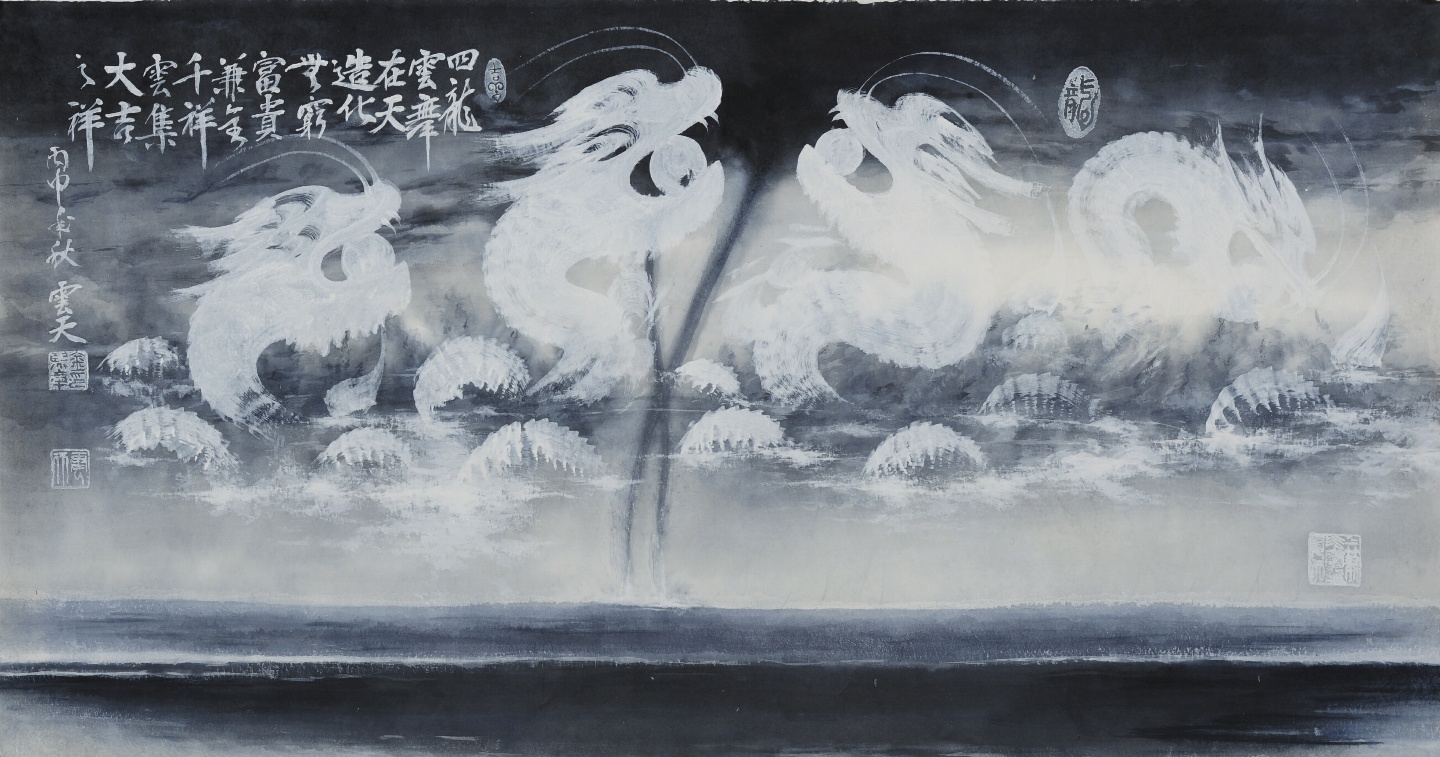 四龍
雲舞
在天
造化
無窮
富貴
兼全
千祥
雲集
大吉
之祥
丙申年秋 雲天
龍